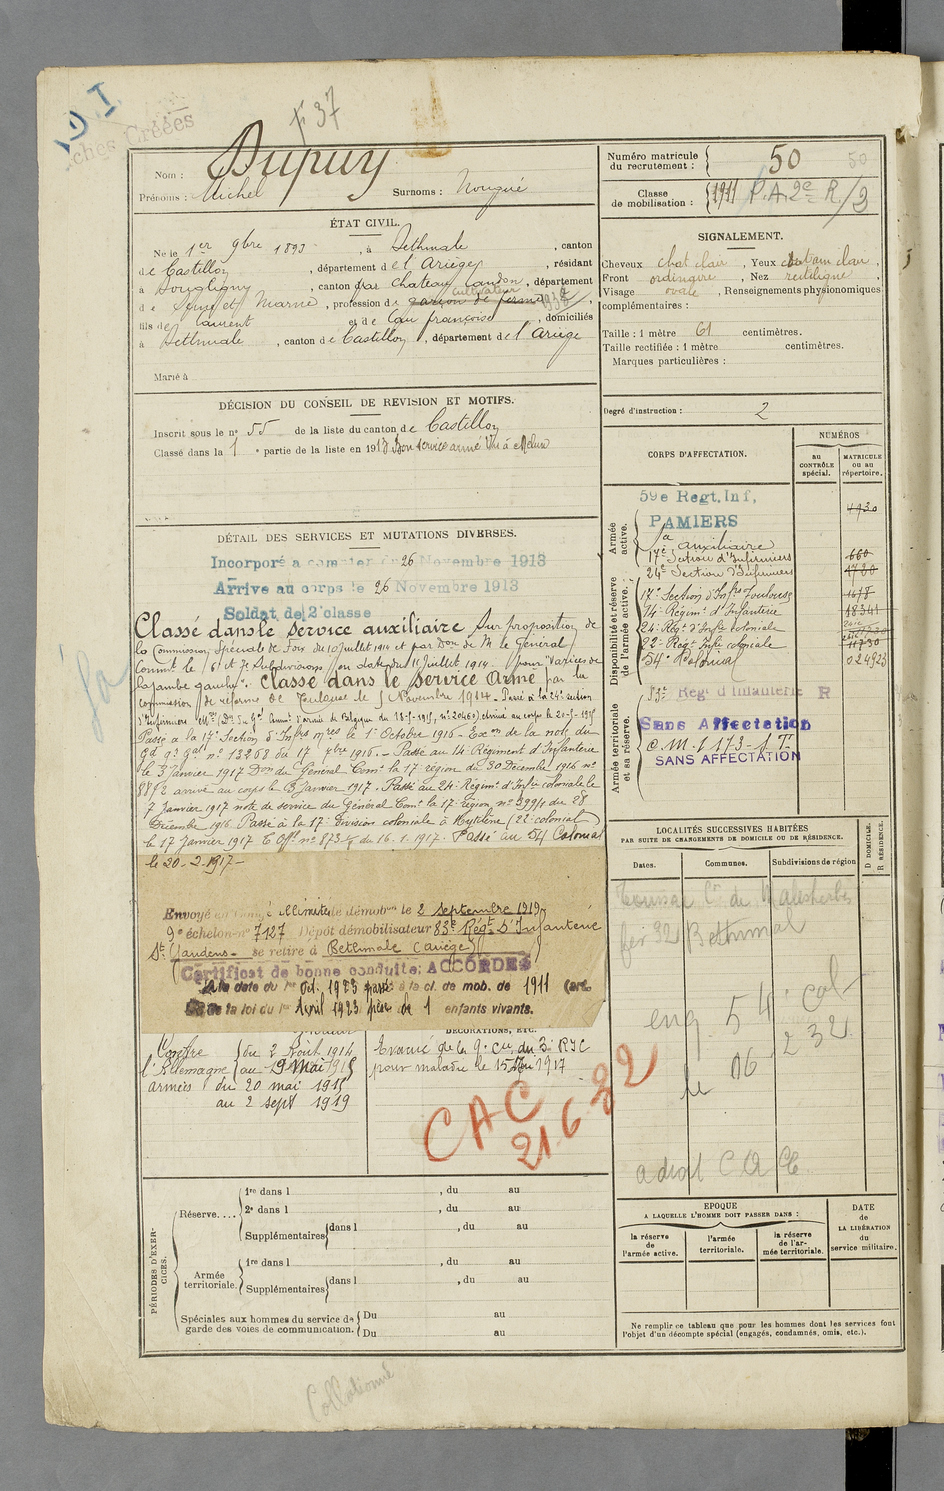 D I
Fiches Créées
fi 37
Nom : Dupuy
Prénoms : Michel Surnoms : Nougué
ÉTAT CIVIL.
Né le 1er 9bre 1893, à Bethmale, canton
de Castillon, département de l'Ariège, résidant
à Bougligny, canton de Chateau Landon, département
cultivateur
de Seine et Marne, profession de garçon de ferme 1932,
fils de Laurent et de Cau françoise, domiciliés
à Bethmale, canton de Castillon, département de l'Ariège
Marié à
DÉCISION DU CONSEIL DE REVISION ET MOTIFS.
Inscrit sous le n° 55 de la liste du canton de Castillon
Classé dans la 1e partie de la liste en 1913 Bon service armé Vu à Melun
DÉTAIL DES SERVICES ET MUTATIONS DIVERSES.
Incorporé à compter du 26 Novembre 1913
Arrive au corps le 26 Novembre 1913
Soldat de 2e classe
Classé dans le service auxiliaire sur proposition de
la Commission Spéciale de Foix du 10 juillet 1914 et par Don de M le Général
Commt les 6e et 7e Subdivisions en date du 11 juillet 1914. pour "Varices de
la jambe gauche". Classé dans le service Armé par la
Commission de réforme de Toulouse le 5 Novembre 1914. Passé à la 24e section
d'Infirmiers arrivé au corps le 21-5-1915
Passé à la 17e Section d'Infrs mres le 1er Octobre 1916 - Exon de la note du
Gd Qr Gal n° 13268 du 17 7bre 1916. - Passé au 14e Régiment d'Infanterie
le 3 janvier 1917 Don du Général Comt la 17e région du 30 Décembre 1916 n°
arrivé au corps le 3 janvier 1917. Passé au 24e Régimt d'Infie coloniale le
7 janvier 1917 note de service du Général Comt la 17e région n° du 28
Décembre 1916. Passé à la 17e Division coloniale à Mytilène (22e colonial)
le 17 janvier 1917 du 16.1.1917. Passé au 54e Colonial
le 20-2-1917-
Envoyé en congé illimité de démobon le 2 septembre 1919
9e échelon n° 7127 Dépôt démobilisateur 83e Régt d'Infanterie
St Gaudens - se retire à Bethmale (Ariège)
Certificat de bonne conduite: ACCORDÉ
A la date du 1er Oct. 1923 passé à la cl. de mob. de 1911 (art.
de la loi du 1er Avril 1923 père de 1 enfants vivants.
Contre du 2 Août 1914
l'Allemagne au 19 Mai 1915
armées du 20 mai 1915
au 2 sept 1919
DÉCORATIONS, ETC.
Evacué de la 9e Cie du 3e R I C
pour maladie le 15 Mai 1917
CAC
21.6.32
PÉRIODES D'EXERCICES.
Réserve.... 1re dans l , du au
2e dans l , du au
Supplémentaires dans l , du au
Armée territoriale. 1re dans l , du au
Supplémentaires dans l , du au
Spéciales aux hommes du service de garde des voies de communication. Du au
Du au
Collationné
Numéro matricule du recrutement : 50 50
Classe de mobilisation : 1911 P.A. 2e R/3
SIGNALEMENT.
Cheveux chat clair, Yeux chatain clair,
Front ordinaire, Nez rectiligne,
Visage ovale, Renseignements physionomiques
complémentaires :
Taille : 1 mètre 61 centimètres.
Taille rectifiée : 1 mètre centimètres.
Marques particulières :
Degré d'instruction : 2
CORPS D'AFFECTATION.
NUMÉROS
au CONTRÔLE spécial.
MATRICULE ou au répertoire.
Armée active.
59e Regt. Inf,
PAMIERS
auxiliaire
17e Section d'Infirmiers 660
24e Section d'Infirmiers 1720
Disponibilité et réserve de l'armée active.
17e Section d'Infrs Toulouse
14e Régimt d'Infanterie 18341
24e Régt d'Infie coloniale
22e Régt Infie coloniale 11730
54e Colonial 024923
Armée territoriale et sa réserve.
83e Régt d'Infanterie R
Sans Affectation
SANS AFFECTATION
LOCALITÉS SUCCESSIVES HABITÉES
PAR SUITE DE CHANGEMENTS DE DOMICILE OU DE RÉSIDENCE.
Dates. Communes. Subdivisions de région
D DOMICILE.
R RÉSIDENCE.
Cn de Malesherbes
fév 32 Bethmal
54 Col
232
EPOQUE
A LAQUELLE L'HOMME DOIT PASSER DANS :
la réserve de l'armée active.
l'armée territoriale.
la réserve de l'armée territoriale.
DATE
de
LA LIBÉRATION
du
service militaire.
Ne remplir ce tableau que pour les hommes dont les services font
l'objet d'un décompte spécial (engagés, condamnés, omis, etc.).